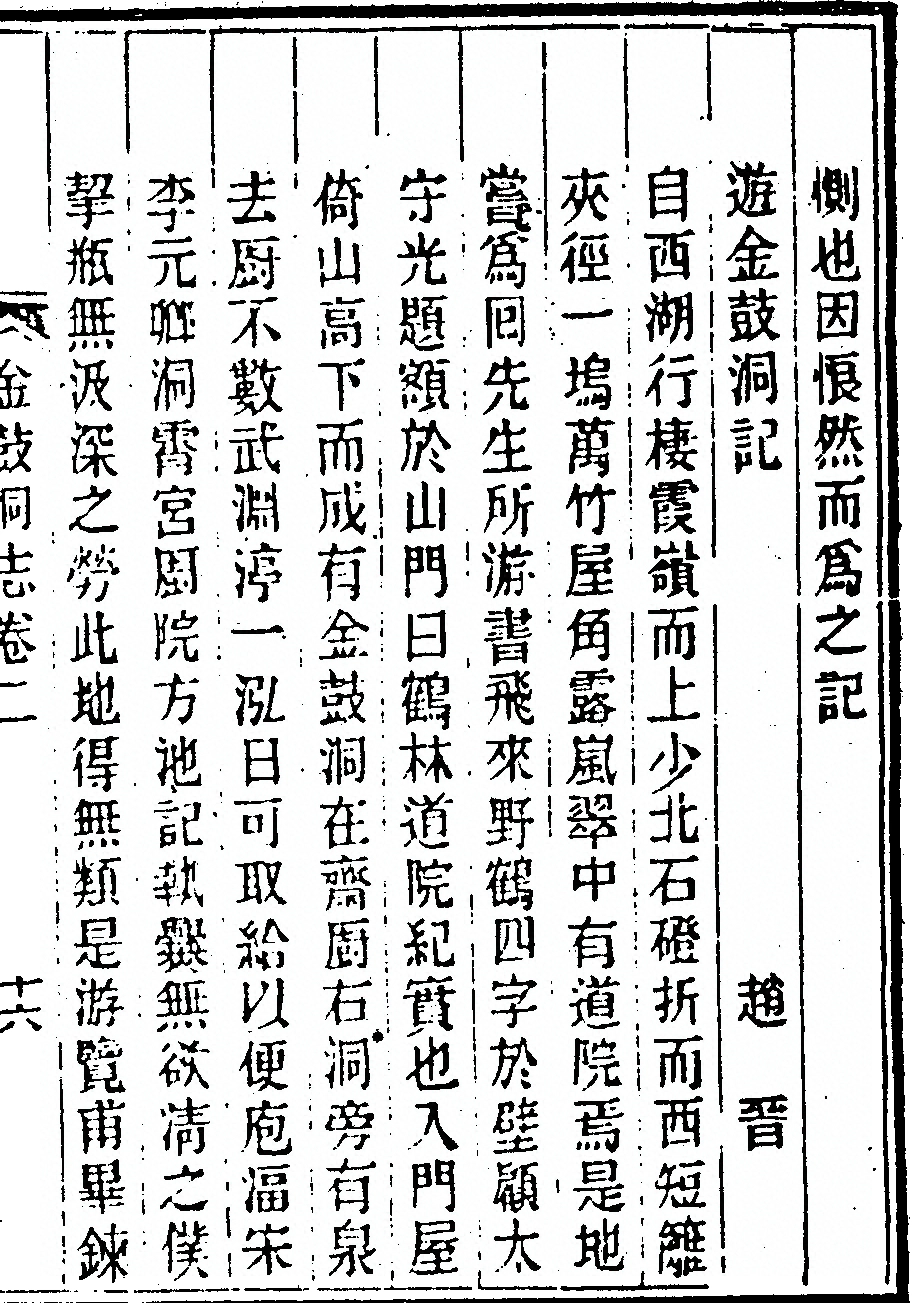 惻也因悵然而爲之記
遊金鼓洞記 趙晉
自西湖行棲霞嶺而上少北石磴折而西短籬
夾徑一塢萬竹屋角露嵐翠中有道院焉是地
嘗爲回先生所游書飛來野鶴四字於壁顧太
守光題額於山門曰鶴林道院紀實也入門屋
倚山高下而成有金鼓洞在齋厨右洞旁有泉
去厨不數武淵渟一泓日可取給以便庖湢宋
李元卿洞霄宮厨院方池記執爨無欲凊之僕
挈瓶無汲深之勞此地得無類是游覽甫畢鍊
金鼓洞志卷二 十六